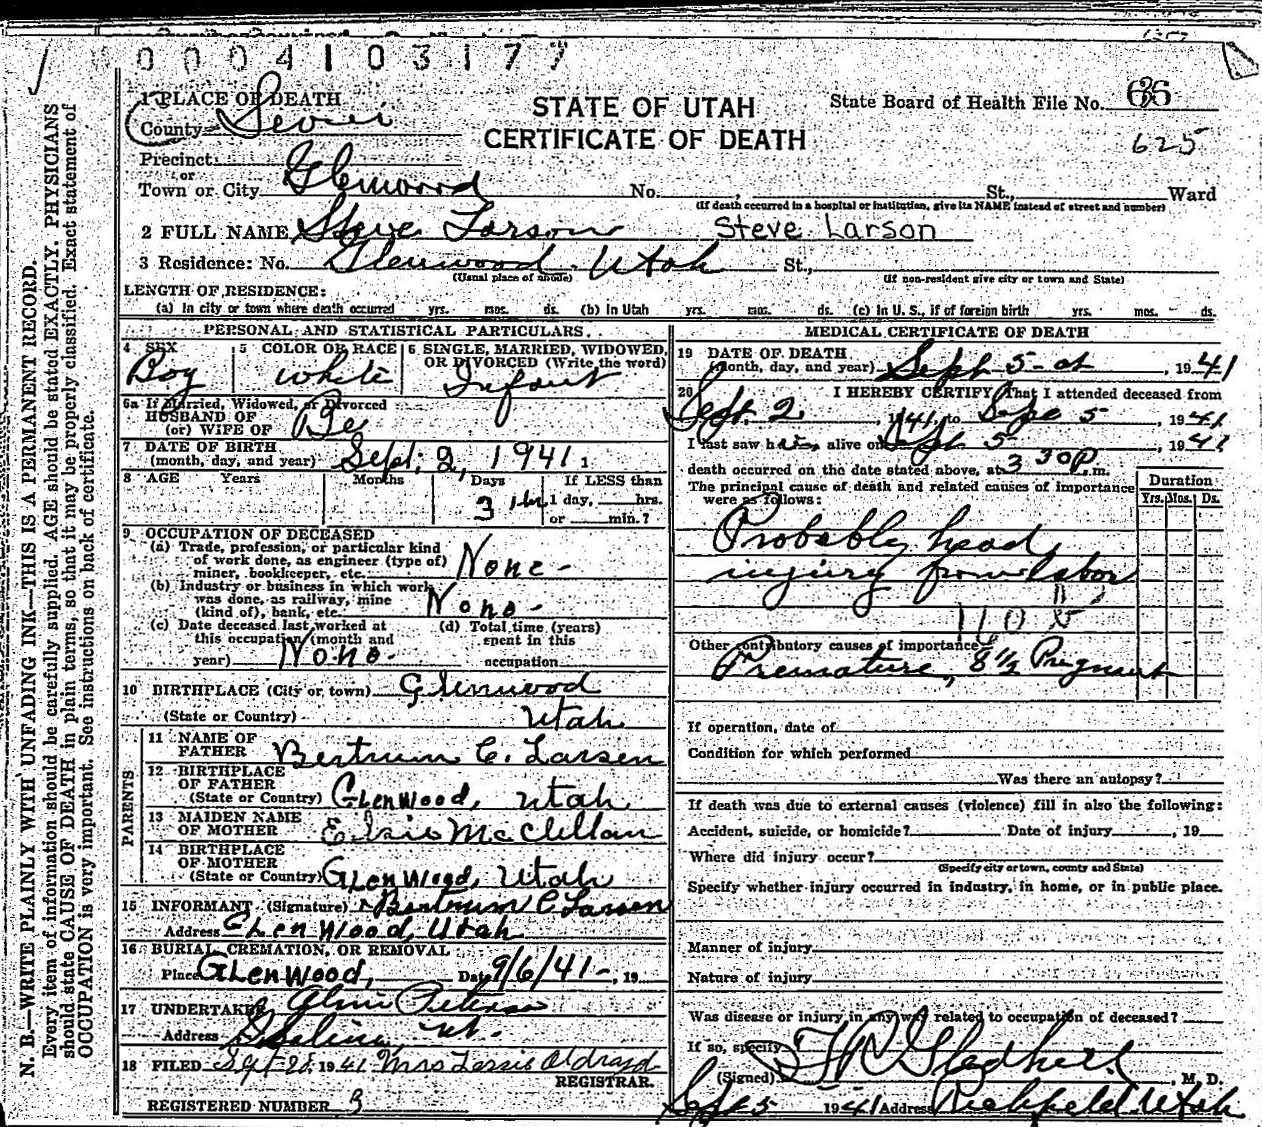 0004103177
1 PLACE OF DEATH
County Sevier
STATE OF UTAH
CERTIFICATE OF DEATH
State Board of Health File No. 66
625
Precinct
or
Town or City Glenwood No. , St., Ward
(If death occurred in a hospital or institution, give its NAME instead of street and number)
2 FULL NAME Steve Larson Steve Larson
3 Residence: No. Glenwood Utah St.,
(Usual place of abode) (If non-resident give city or town and State)
LENGTH OF RESIDENCE:
(a) In city or town where death occurred yrs. mos. ds. (b) In Utah yrs. mos. ds. (c) In U. S., if of foreign birth yrs. mos. ds.
PERSONAL AND STATISTICAL PARTICULARS.
4 SEX
Boy
5 COLOR OR RACE
white
6 SINGLE, MARRIED, WIDOWED,
OR DIVORCED (Write the word)
Infant
6a If Married, Widowed, or Divorced
HUSBAND OF
(or) WIFE OF
7 DATE OF BIRTH
(month, day, and year) Sept. 2, 1941
8 AGE Years Months Days If LESS than
3 1 day, hrs.
or min.?
9 OCCUPATION OF DECEASED
(a) Trade, profession, or particular kind
of work done, as engineer (type of)
miner, bookkeeper, etc. None -
(b) Industry or business in which work
was done, as railway, mine
(kind of), bank, etc. None -
(c) Date deceased last worked at
this occupation (month and
year) None -
(d) Total time (years)
spent in this
occupation
10 BIRTHPLACE (City or town) Glenwood
(State or Country) Utah
PARENTS
11 NAME OF
FATHER Bertrum C. Larsen
12 BIRTHPLACE
OF FATHER
(State or Country) Glenwood, Utah
13 MAIDEN NAME
OF MOTHER McClellan
14 BIRTHPLACE
OF MOTHER
(State or Country) Glenwood, Utah
15 INFORMANT (Signature) Bertrum C Larsen
Address Glenwood, Utah
16 BURIAL, CREMATION, OR REMOVAL
Place Glenwood, Date 9/6/41-, 19
17 UNDERTAKER
Address Salina, Ut.
18 FILED Sept 28, 1941 Mrs
REGISTRAR.
REGISTERED NUMBER 3
MEDICAL CERTIFICATE OF DEATH
19 DATE OF DEATH
(month, day, and year) Sept 5 , 1941
20 I HEREBY CERTIFY That I attended deceased from
Sept. 2, 1941, to Sept 5, 1941
I last saw h alive on Sept 5, 1941
death occurred on the date stated above, at 3 30 P.m.
The principal cause of death and related causes of importance
were as follows:
Duration
Yrs. Mos. Ds.
Probably head
injury from labor
Other contributory causes of importance
Premature, 8 1/2 Pregnant
If operation, date of
Condition for which performed
Was there an autopsy?
If death was due to external causes (violence) fill in also the following:
Accident, suicide, or homicide? Date of injury , 19
Where did injury occur?
(Specify city or town, county and State)
Specify whether injury occurred in industry, in home, or in public place.
Manner of injury
Nature of injury
Was disease or injury in any way related to occupation of deceased?
If so, specify
(Signed) Gledhill, M. D.
Sept 5 1941 Address Richfield Utah
N. B.—WRITE PLAINLY WITH UNFADING INK—THIS IS A PERMANENT RECORD.
Every item of information should be carefully supplied. AGE should be stated EXACTLY. PHYSICIANS
should state CAUSE OF DEATH in plain terms, so that it may be properly classified. Exact statement of
OCCUPATION is very important. See instructions on back of certificate.